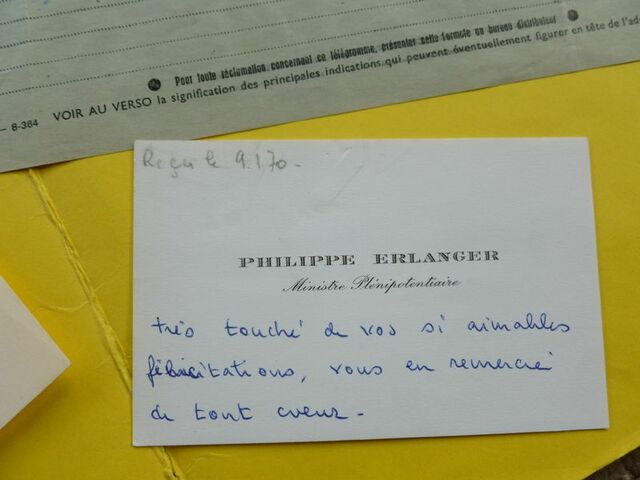 Pour toute réclamation concernant ce télégramme, présenter cette formule au bureau distributeur
8-364 VOIR AU VERSO la signification des principales indications qui peuvent éventuellement figurer en tête de l'ad
Reçu le 9.1.70-
PHILIPPE ERLANGER
Ministre Plénipotentiaire
très touché de vos si aimables
félicitations, vous en remercie
de tout cœur-